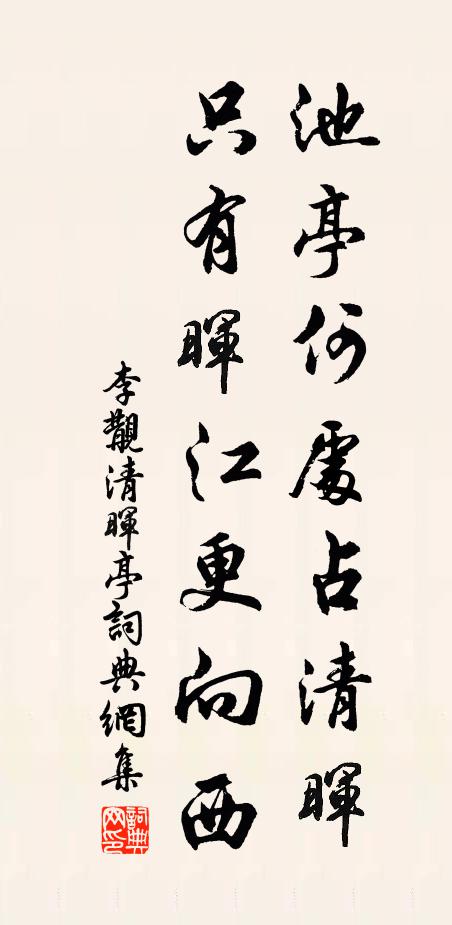 池亭何處占清暉
只有暉江更向西
李覯清暉亭詞典網集
詞典網印